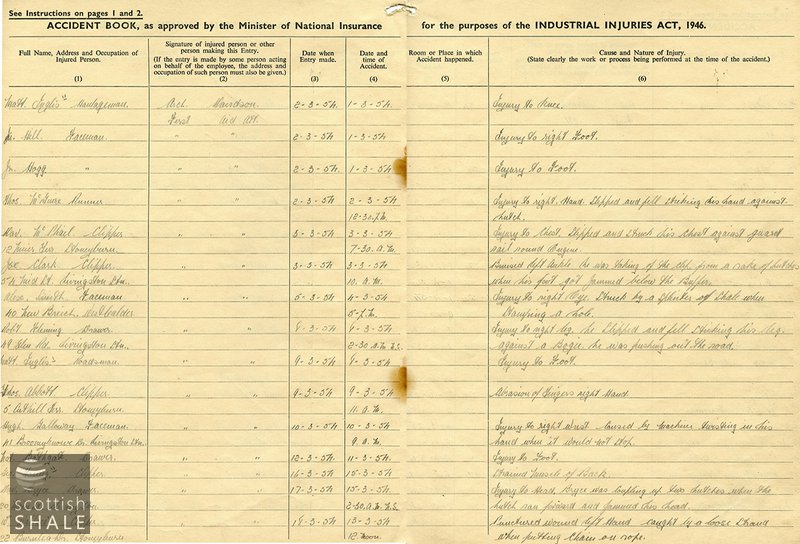 See Instructions on pages 1 and 2.
ACCIDENT BOOK, as approved by the Minister of National Insurance for the purposes of the INDUSTRIAL INJURIES ACT, 1946.
Full Name, Address and Occupation of Injured Person. (1)
Signature of injured person or other person making this Entry. (If the entry is made by some person acting on behalf of the employee, the address and occupation of such person must also be given.) (2)
Date when Entry made. (3)
Date and time of Accident. (4)
Room or Place in which Accident happened. (5)
Cause and Nature of Injury. (State clearly the work or process being performed at the time of the accident.) (6)
Matt. Inglis Davidson 2-3-54 1-3-54 Injury to Knee.
First Aid Att.
Hill Faceman " " 2-3-54 1-3-54 Injury to right Foot.
Jn. Hogg " " " 2-3-54 1-3-54 Injury to Foot.
Thos. McGuire Runner " " 2-3-54 2-3-54 Injury to right Hand. Slipped and fell striking his hand against
12-30 P.M. hutch.
Clipper " " 3-3-54 3-3-54 Injury to Chest. Slipped and struck his Chest against guard
12 Terr. Stoneyburn. 7-30 A.M. rail round Engine.
Clark Clipper " " 3-3-54 3-3-54 Bruised left Ankle. He was taking of the clip from a rake of hutches
54 Livingston Stn. 10 A.M. when his foot got jammed below the Buffer.
Alex. Smith Faceman " " 5-3-54 4-3-54 Injury to right Eye. Struck by a splinter of Shale when
40 New Breich. 5 P.M. Stamping a hole.
Robt. Fleming Drawer " " 9-3-54 Injury to right leg. he slipped and fell striking his leg
Rd. Livingston Stn. 2-30 A.M. against a Bogie he was pushing out the road.
Matt. Inglis Roadsman. " " 9-3-54 Injury to Foot.
Thos. Abbott Clipper " " 9-3-54 9-3-54 Abrasion of Fingers right Hand
5 Cuthill Terr. Stoneyburn. 11 A.M.
Hugh Galloway Faceman " " 10-3-54 10-3-54 Injury to right wrist caused by machine twisting in his
41 Livingston Stn. 9 A.M. hand when it would not stop.
Bathgate Drawer " " 12-3-54 11-3-54 Injury to Foot.
Clipper " " 16-3-54 15-3-54 Strained muscle of Back.
Bryce Drawer " " 17-3-54 15-3-54 Injury to Head, Bryce was coupling up two hutches when the
2-30 A.M. hutch ran forward and jammed his head.
" " 13-3-54 Punctured wound left Hand caught by a loose strand
Stoneyburn 12 noon. when putting chain on rope.
scottish
SHALE